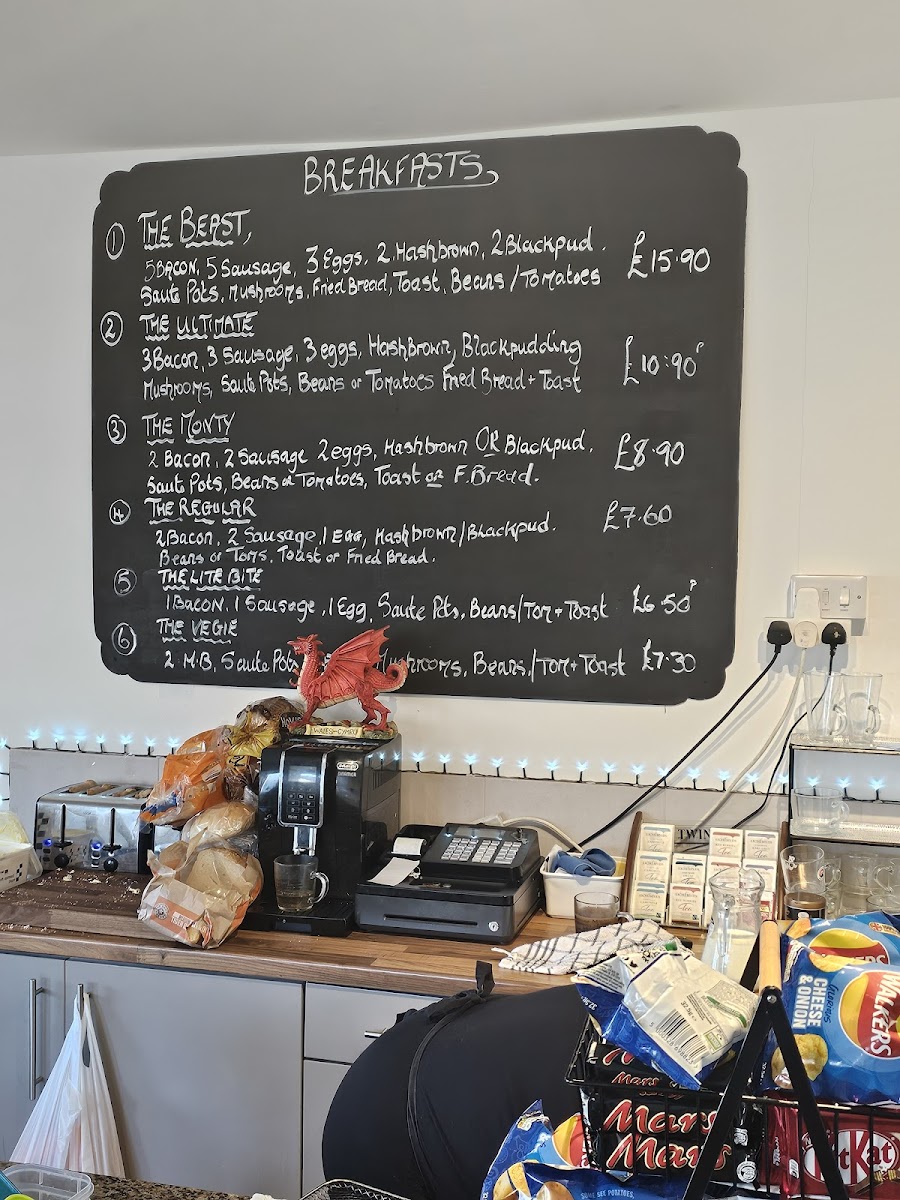 BREAKFASTS
① THE BEAST,
5 BACON, 5 Sausage, 3 Eggs, 2 Hashbrown, 2 Blackpud. £15.90
Saute Pots, Mushrooms, Fried Bread, Toast, Beans/Tomatoes
② THE ULTIMATE
3 Bacon, 3 Sausage, 3 eggs, Hashbrown, Blackpudding £10.90P
Mushrooms, Saute Pots, Beans or Tomatoes Fried Bread + Toast
③ THE MONTY
2 Bacon, 2 Sausage 2 eggs, Hashbrown OR Blackpud. £8.90
Saute Pots, Beans or Tomatoes, Toast or F. Bread.
④ THE REGULAR
2 Bacon, 2 Sausage, 1 Egg, Hashbrown/Blackpud. £7.60
Beans or Toms, Toast or Fried Bread.
⑤ THE LITE BITE
1 BACON, 1 Sausage, 1 Egg, Saute Pots, Beans/Tom + Toast £6.50P
⑥ THE VEGIE
2 M.B, Saute Pots Mushrooms, Beans/Tom + Toast £7.30
WALES-CYMRU
DeLonghi
TWIN
WALKERS
CHEESE & ONION
32.5g
Mars
Mars
Mars
KitKat